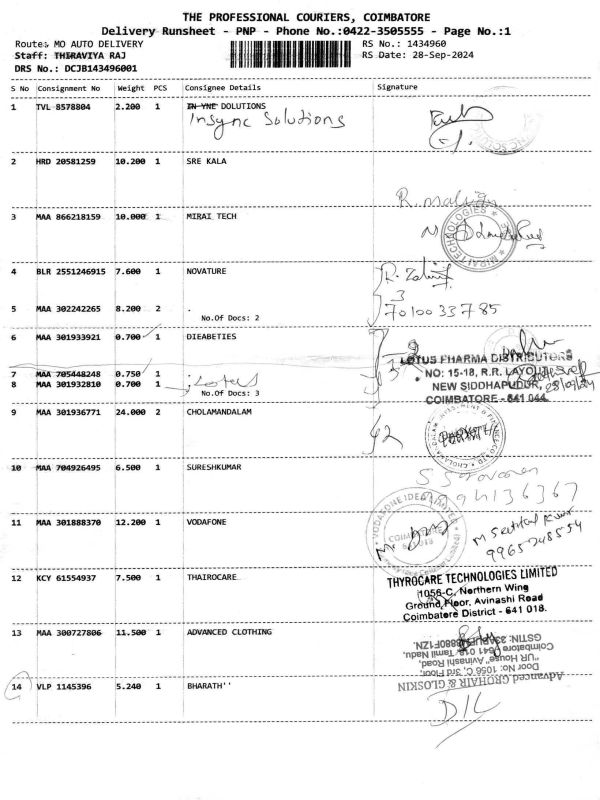 THE PROFESSIONAL COURIERS, COIMBATORE
Delivery Runsheet - PNP - Phone No.:0422-3505555 - Page No.:1
Route: MO AUTO DELIVERY RS No.: 1434960
Staff: THIRAVIYA RAJ RS Date: 28-Sep-2024
DRS No.: DCJB143496001
S No Consignment No Weight PCS Consignee Details Signature
1 TVL 8578804 2.200 1 IN YNE DOLUTIONS
Insync Solutions
2 HRD 20581259 10.200 1 SRE KALA
3 MAA 866218159 10.000 1 MIRAI TECH
MIRAI TECHNOLOGIES
4 BLR 2551246915 7.600 1 NOVATURE
3
5 MAA 302242265 8.200 2 .
No.Of Docs: 2
7010033785
6 MAA 301933921 0.700 1 DIEABETIES
7 MAA 705448248 0.750 1
8 MAA 301932810 0.700 1 Lotus
No.Of Docs: 3
LOTUS PHARMA DISTRIBUTORS
NO: 15-18, R.R. LAYOUT
NEW SIDDHAPUDUR,
COIMBATORE - 641 044.
9 MAA 301936771 24.000 2 CHOLAMANDALAM
10 MAA 704926495 6.500 1 SURESHKUMAR
11 MAA 301888370 12.200 1 VODAFONE
VODAFONE IDEA LIMITED
9965248554
12 KCY 61554937 7.500 1 THAIROCARE
THYROCARE TECHNOLOGIES LIMITED
1056-C, Northern Wing
Ground Floor, Avinashi Road
Coimbatore District - 641 018.
13 MAA 300727806 11.500 1 ADVANCED CLOTHING
Advanced GROHAIR & GLOSKIN
Door No: 1056 C, 3rd Floor,
"UR House" Avinashi Road,
Coimbatore 641 018, Tamil Nadu.
14 VLP 1145396 5.240 1 BHARATH''